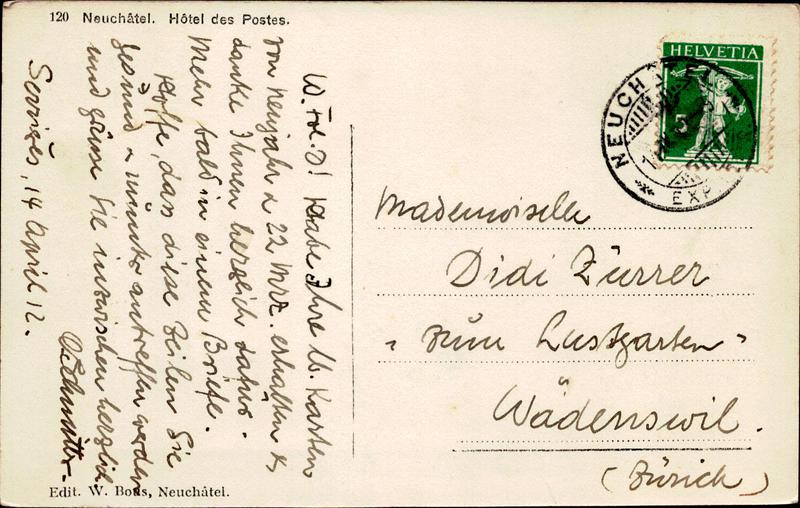 120 Neuchâtel. Hôtel des Postes.
HELVETIA
5
NEUCHATEL
EXP
W. Frl. D! Habe Ihre lb. Karten
von Neujahr & 22 Mrz. erhalten &
danke Ihnen herzlich dafür.
Mehr bald in einem Briefe.
Hoffe, dass diese Zeilen Sie
gesund & munter antreffen werden
und grüsse Sie inzwischen herzlich
14 April 12.
Mademoiselle
Didi Zürrer
"Zum Lustgarten"
Wädenswil.
(Zürich)
Edit. W. Bous, Neuchâtel.